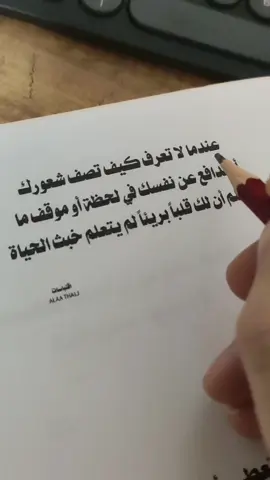 عندما لا تعرف كيف تصف شعورك
تدافع عن نفسك في لحظة أو موقف ما
أن لك قلباً بريئاً لم يتعلم خبث الحياة
اقتباسات
ALAA THALJ